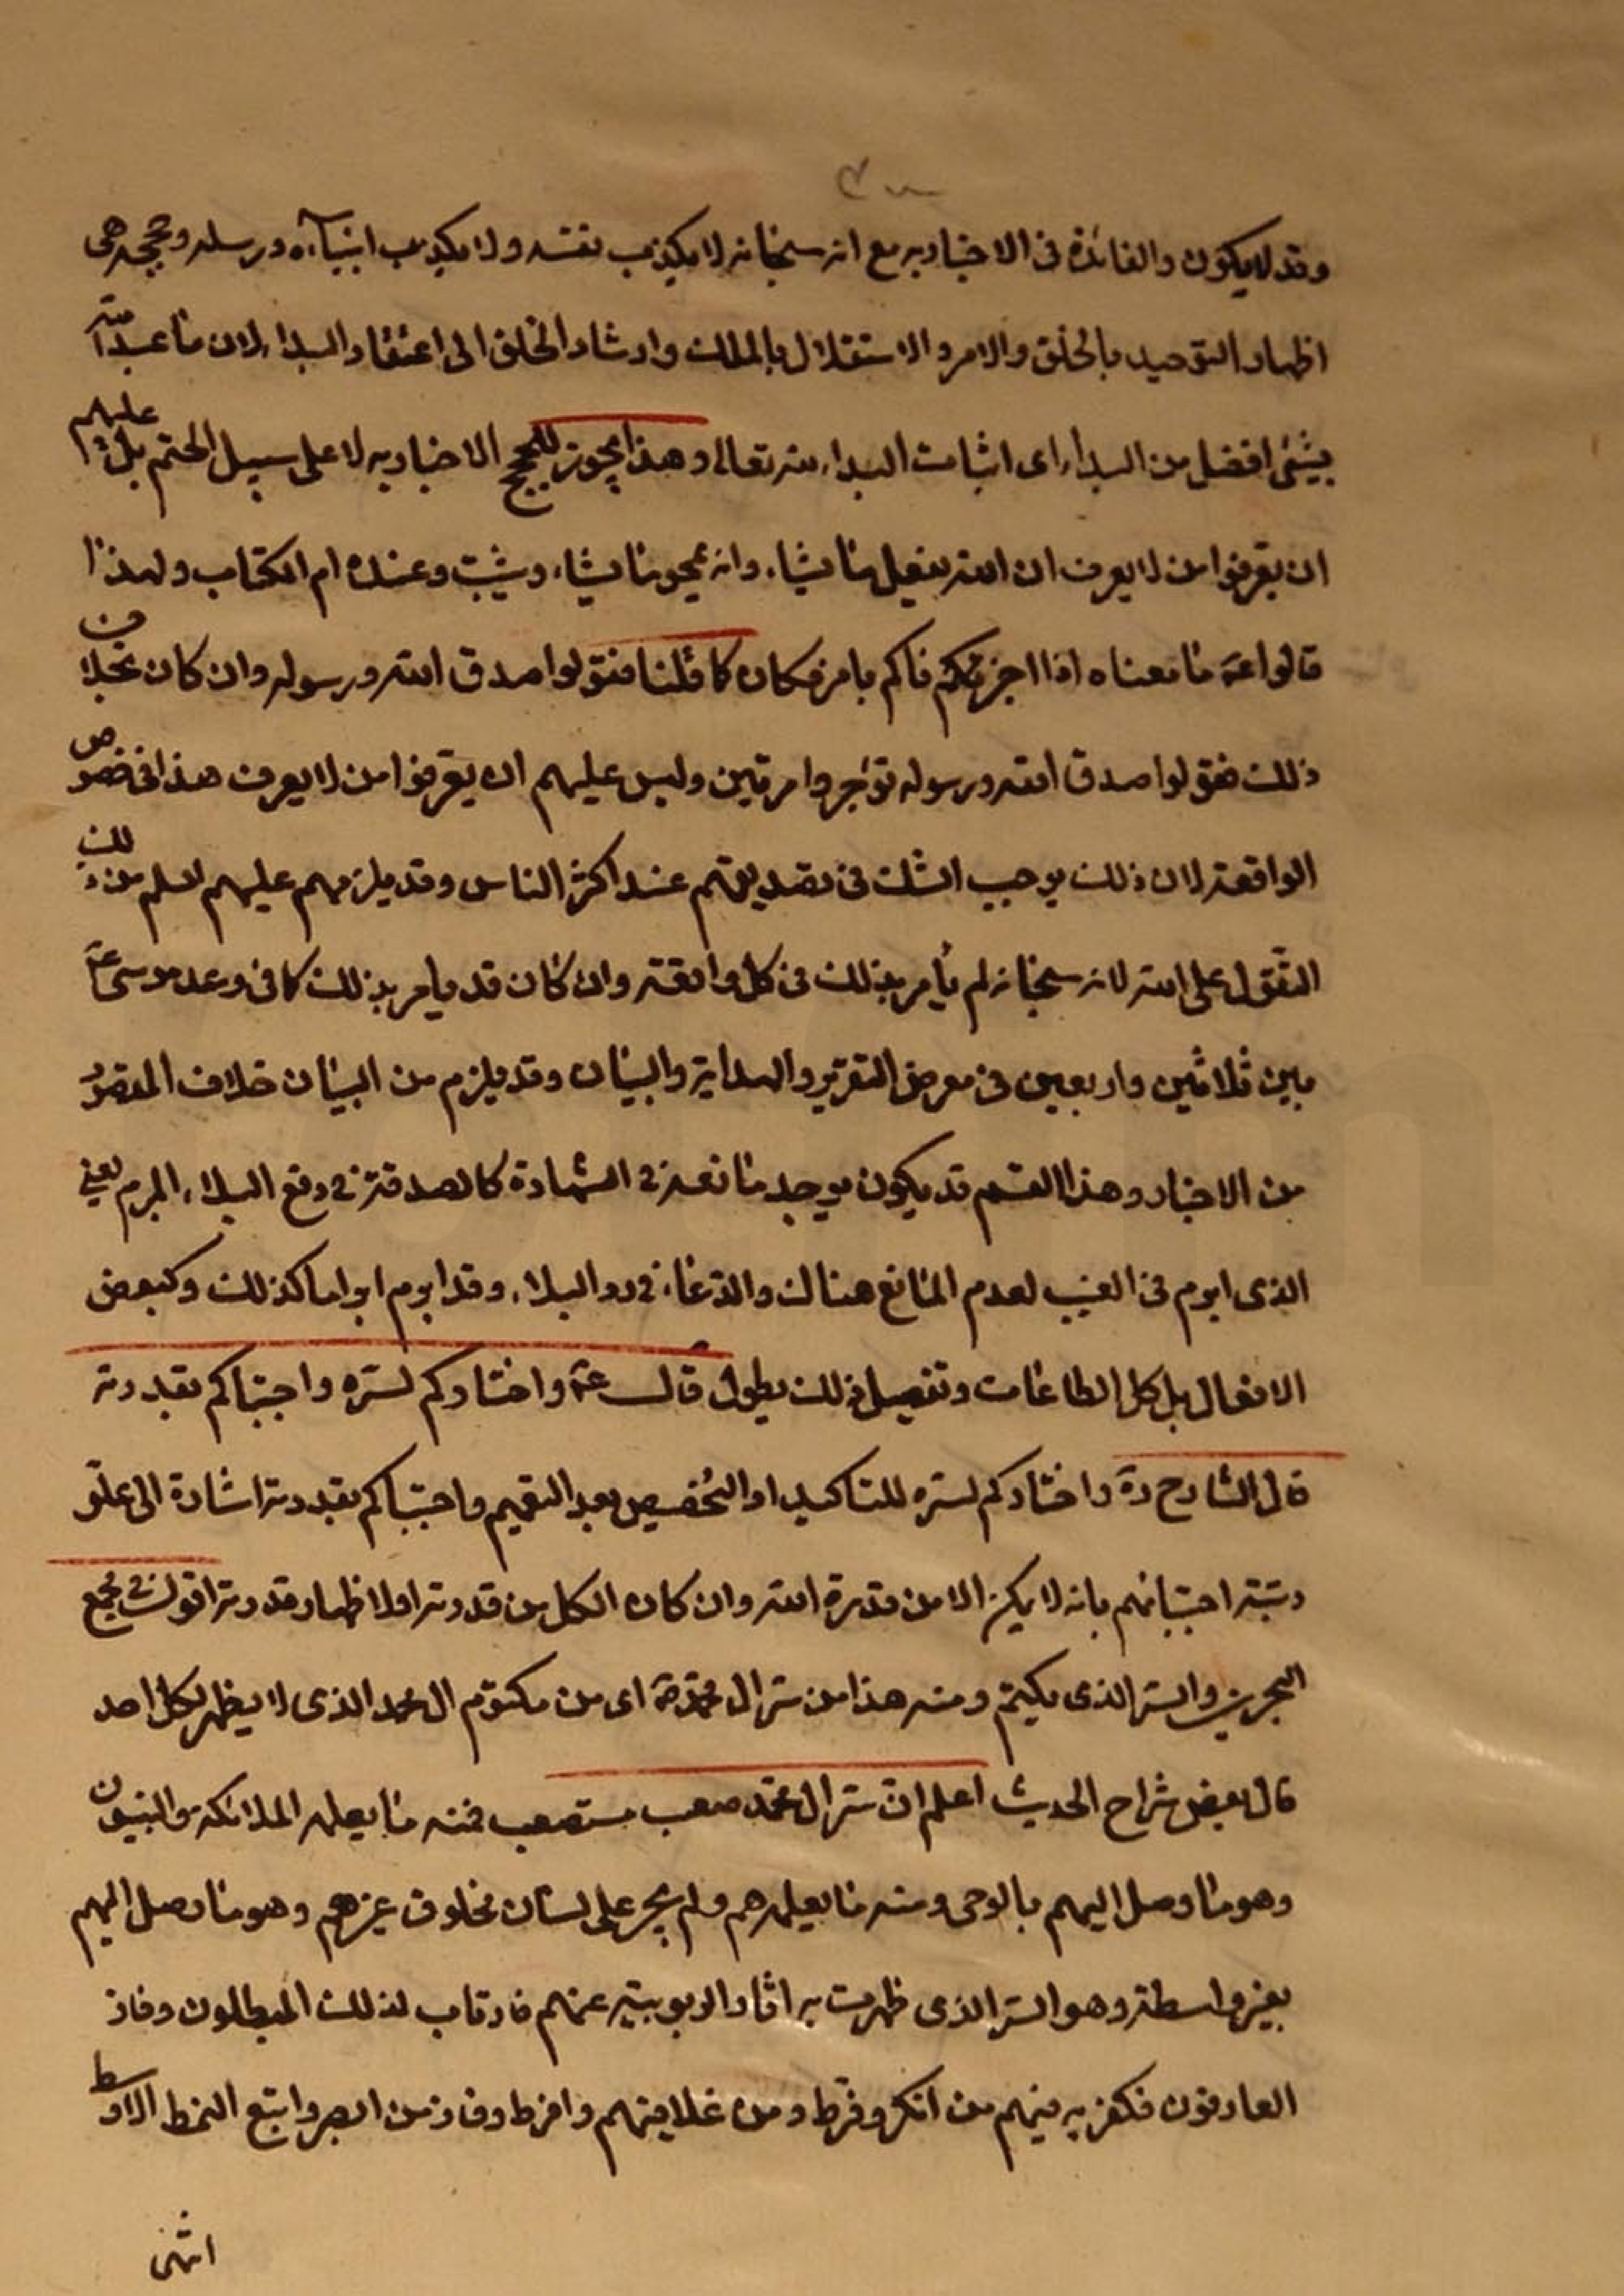 وقد لا يكون والفائدة في الاخبار به مع انه سبحانه لا يكذب نفسه ولا يكذب انبيآءه ورسله وحججه هي
اظهار التوحيد بالخلق والامر والاستقلال بالملك وارشاد الخلق الى اعتقاد البداء لان ما عبد الله
بشئ افضل من البداء اى اثبات البداء لله تعالى وهذا يجوز للحجج الاخبار به لا على سبيل الحتم بل عليهم
ان يعرفوا من لا يعرف ان الله يفعل ما يشاء وانه يمحو ما يشاء ويثبت وعنده ام الكتاب ولهذا
قالوا عم ما معناه اذا اخبرناكم بامر فكان كما قلنا فقولوا صدق الله ورسوله وان كان بخلاف
ذلك فقولوا صدق الله ورسوله تؤجروا مرتين وليس عليهم ان يعرفوا من لا يعرف هذا في خصوص
الواقعة لان ذلك يوجب الشك في تصديقهم عند اكثر الناس وقد يلزمهم عليهم السلم من ذلك
التقول على الله لانه سبحانه لم يأمر بذلك في كل واقعة وان كان قد يأمر بذلك كما في وعد موسى عم
بين ثلاثين واربعين في معرض التقرير والهداية والبيان وقد يلزم من البيان خلاف المقصود
من الاخبار وهذا القسم قد يكون يوجد مانعه في الشهادة كالصدقة في دفع البلاء المبرم يعني
الذى ابرم في الغيب لعدم المانع هناك والدعاء في رد البلاء وقد ابرم ابراما كذلك وكبعض
الافعال بل كل الطاعات وتفصيل ذلك يطول قال عم واختاركم لسره واجتباكم بقدرته
قال الشارح ره واختاركم لسره للتاكيد او التخصيص بعد التعميم واجتباكم بقدرته اشارة الى علو
رتبة اجتبائهم بانه لا يمكن الا من قدرة الله وان كان الكل من قدرته او لاظهار قدرته اقول في مجمع
البحرين والسر الذى يكتم ومنه هذا من سر ال محمد ص اى من مكتوم ال محمد الذى لا يظهر لكل احد
قال بعض شراح الحديث اعلم ان سر ال محمد صعب مستصعب فمنه ما يعلمه الملائكة والنبيون
وهو ما وصل اليهم بالوحى ومنه ما يعلمه هم ولم يجر على لسان مخلوق غيرهم وهو ما وصل اليهم
بغير واسطة وهو السر الذى ظهرت به اثار الربوبية عنهم فارتاب لذلك المبطلون وفاز
العارفون فكفر به فيهم من انكر وفرط ومن غلا فيهم وافرط وفاز من ابصر واتبع النمط الاوسط
انتهى